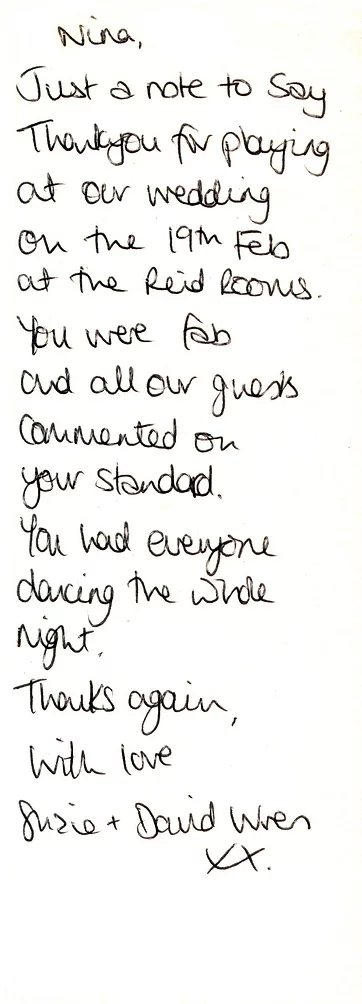 Nina,
Just a note to say
Thankyou for playing
at our wedding
on the 19th Feb
at the Reid Rooms.
You were fab
and all our guests
commented on
your standard.
You had everyone
dancing the whole
night.
Thanks again,
with love
Suzie + David Wren
XX.